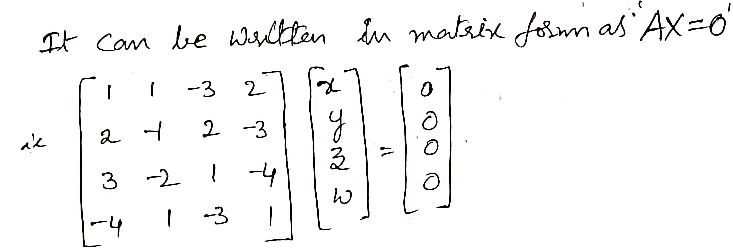 It can be written in matrix form as 'AX=0'
ie [1 1 -3 2; 2 -1 2 -3; 3 -2 1 -4; -4 1 -3 1] [x; y; z; w] = [0; 0; 0; 0]